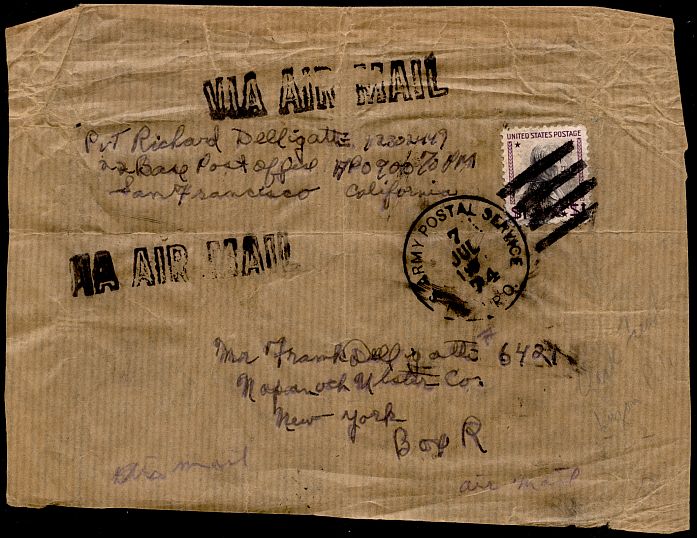 VIA AIR MAIL
Pvt Richard Delligatti
22 Base Post Office APO 900 % PM
San Francisco California
UNITED STATES POSTAGE
ARMY POSTAL SERVICE
7
JUL
19
A.P.O.
VIA AIR MAIL
Mr Frank Delligatti # 6421
Napanoch Ulster Co.
New york
Box R
Air mail
air mail